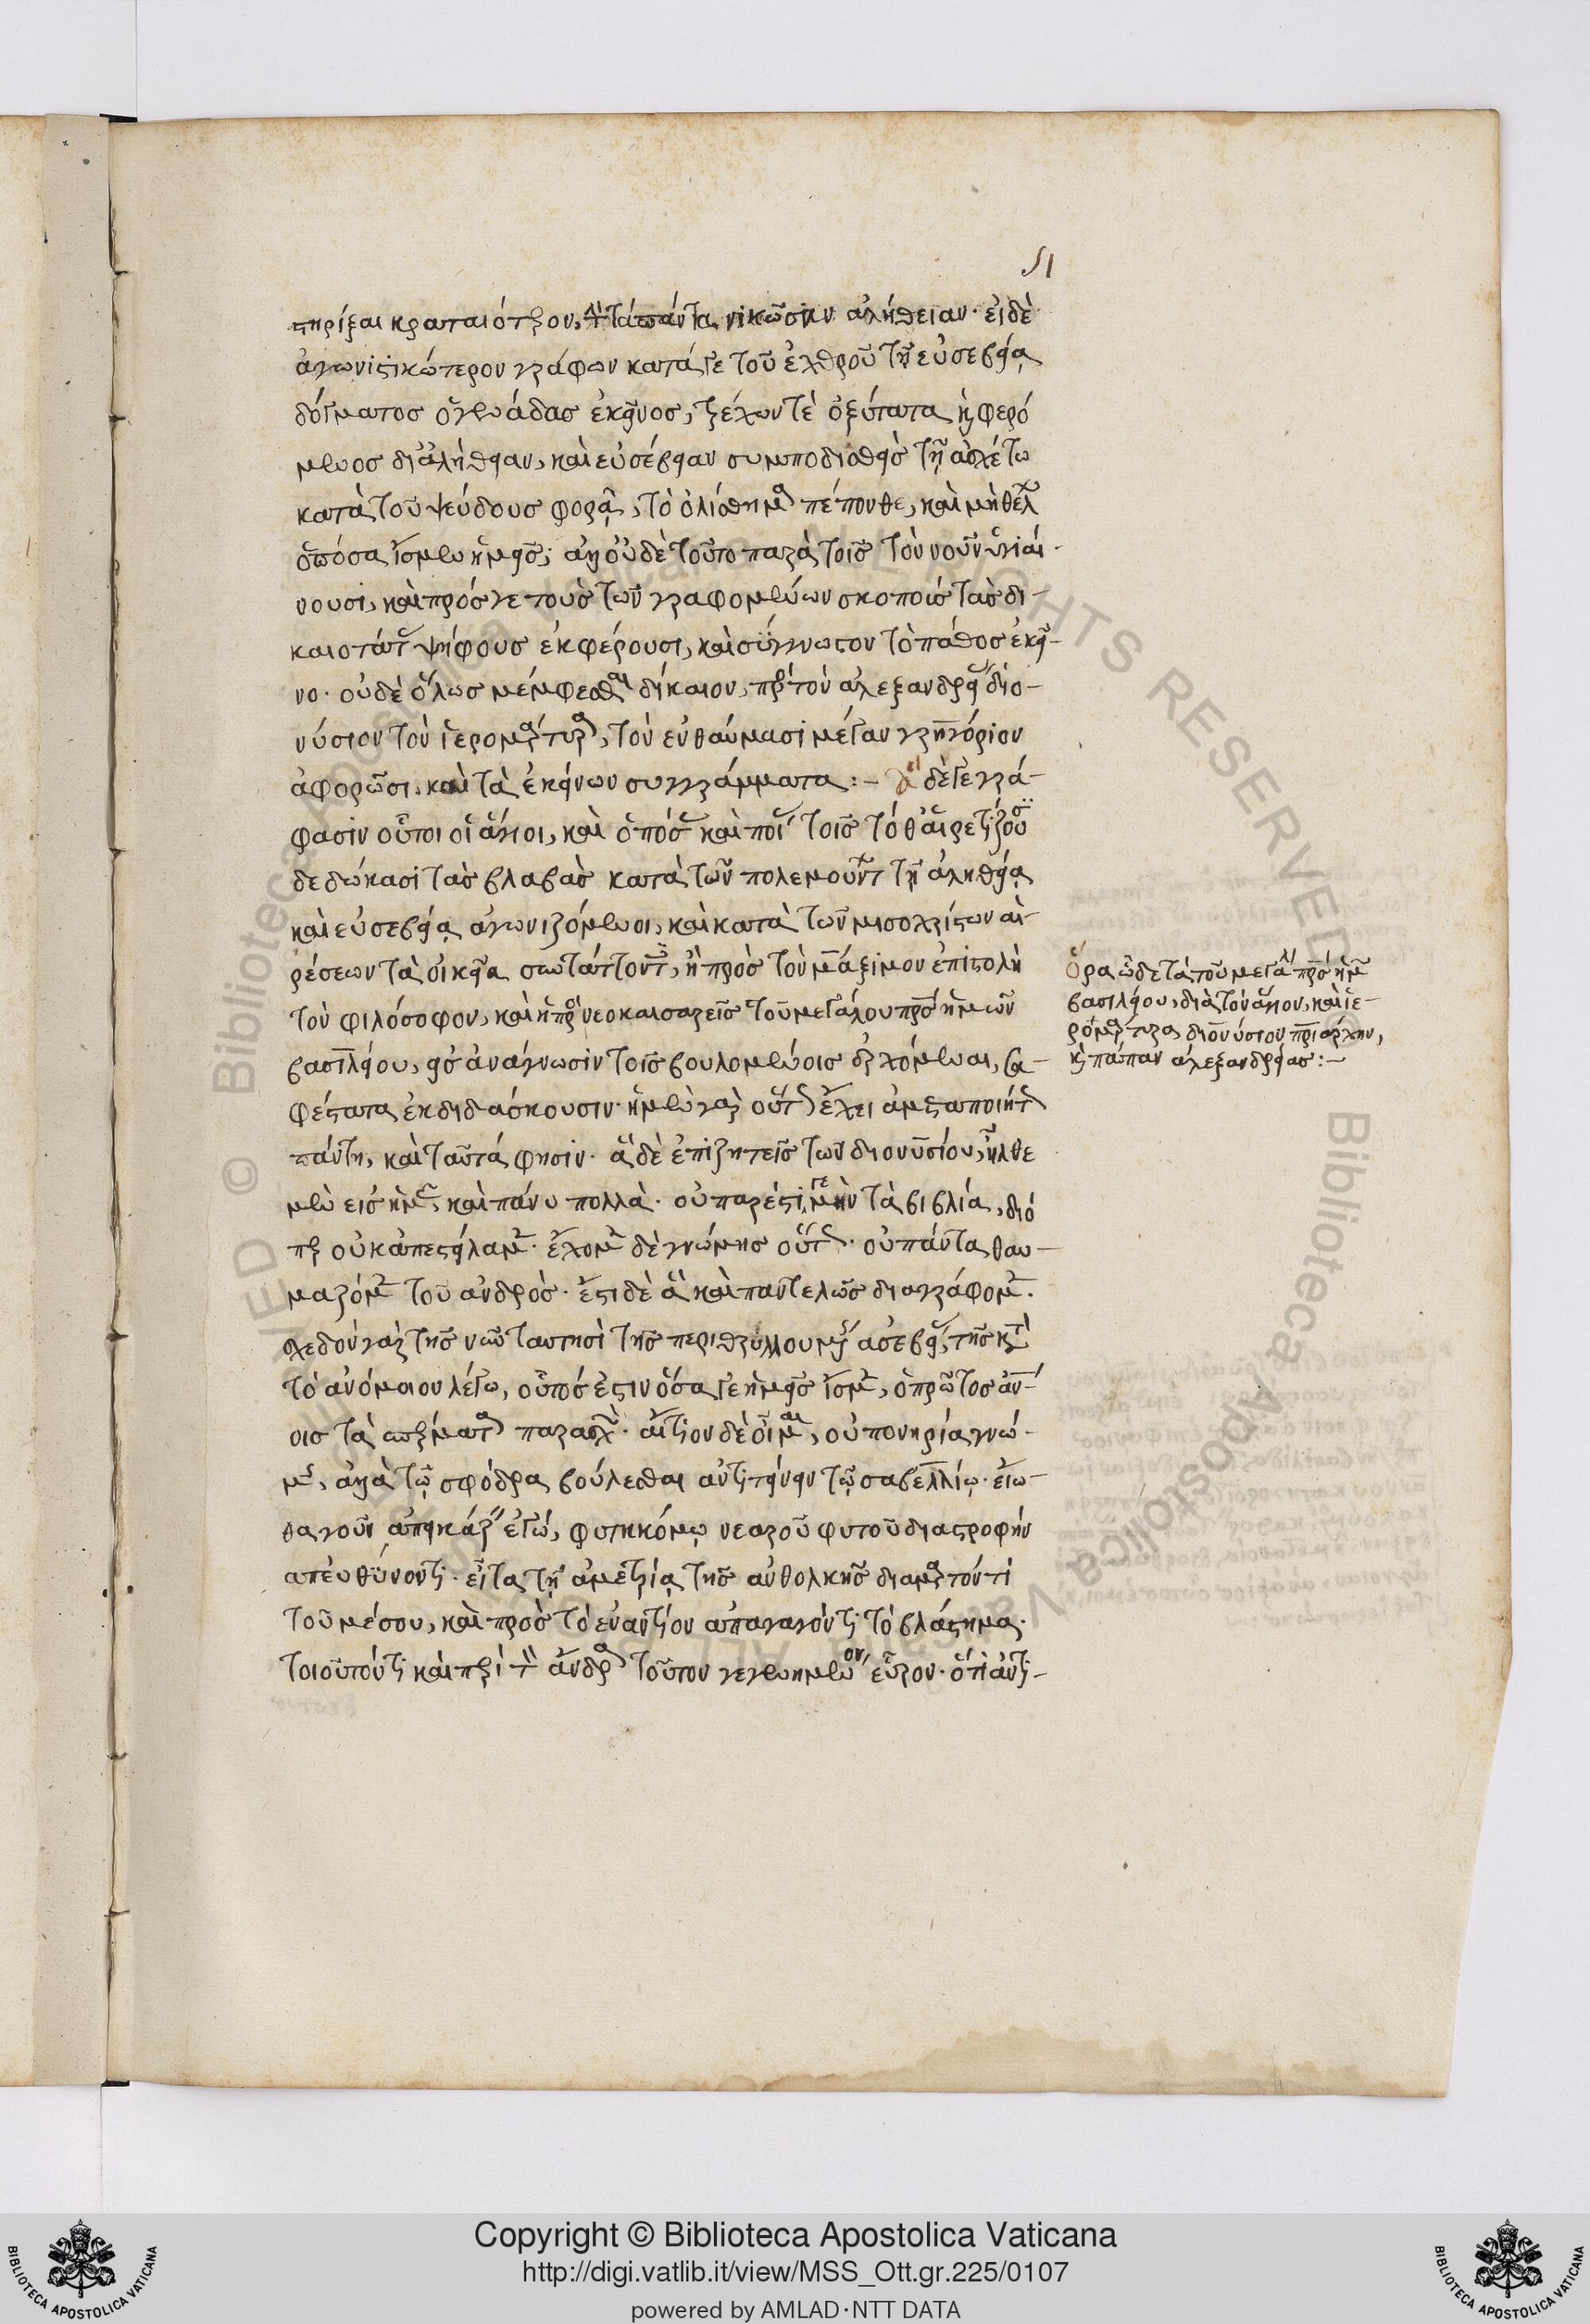 51
στηρίξαι κραταιότερον, τὴν τὰ πάντα νικῶσαν ἀλήθειαν· εἰ δὲ
ἀγωνιστικώτερον γράφων κατά γε τοῦ ἐχθροῦ τῇ εὐσεβείᾳ
δόγματος ὀγδοάδας ἐκεῖνος, τρέχων τὲ ὀξύτατα καὶ φερό
μενος δι' ἀλήθειαν, καὶ εὐσέβειαν συμποδισθεὶς τῇ ἀσχέτω
κατὰ τοῦ ψεύδους φορᾷ, τὸ ὀλίσθημα πέπονθε, καὶ μὴ θέλων
ὁπόσα ἴσμεν ἡμεῖς· ἀλλ' οὐδὲ τοῦτο παρὰ τοῖς τὸν νοῦν ὑγιαί-
νουσι, καὶ πρός γε τοὺς τῶν γραφομένων σκοποὺς τὰς δι-
καιοτάτας ψήφους ἐκφέρουσι, καὶ σύγγνωστον τὸ πάθος ἐκεῖ-
νο· οὐδὲ ὅλως μέμφεσθαι δίκαιον, πρὸς τὸν ἀλεξανδρείας διο-
νύσιον τὸν ἱερομάρτυρα, τὸν ἐν θαύμασι μέγαν γρηγόριον
ἀφορῶσι, καὶ τὰ ἐκείνων συγγράμματα :- δὲ γεγρά-
φασιν οὗτοι οἱ ἅγιοι, καὶ ὁπόσας καὶ ποίας τοῖς τόθ' αἱρετίζουσι
δεδώκασι τὰς βλαβὰς κατὰ τῶν πολεμούντων τῇ ἀληθείᾳ
καὶ εὐσεβείᾳ ἀγωνιζόμενοι, καὶ κατὰ τῶν μισοχρίστων αἱ-
ρέσεων τὰ οἰκεῖα συντάττοντες, ἡ πρὸς τὸν μάξιμον ἐπιστολὴ
τὸν φιλόσοφον, καὶ ἡ πρὸς νεοκαισαρεῖς τοῦ μεγάλου πατρὸς ἡμῶν
βασιλείου, εἰς ἀνάγνωσιν τοῖς βουλομένοις ἐρχόμεναι, σα-
φέστατα ἐκδιδάσκουσιν· ἡ μὲν γὰρ οὕτως ἔχει ἀμεταποιήτως
πάντη, καὶ ταῦτά φησιν· ἃ δὲ ἐπιζητεῖς τῶν διονυσίου, ἦλθε
μὲν εἰς ἡμᾶς, καὶ πάνυ πολλά· οὐ πάρεστι γε μὴν τὰ βιβλία, διό
περ οὐκ ἀπεστείλαμεν· ἔχομεν δὲ γνώμης οὕτως· οὐ πάντα θαυ-
μάζομεν τοῦ ἀνδρός· ἔστι δὲ ἃ καὶ παντελῶς διαγράφομεν·
σχεδὸν γὰρ τῆς νῦν ταυτησὶ τῆς περιθρυλλουμένης ἀσεβείας, τῆς κατὰ
τὸ ἀνόμοιον λέγω, οὗτός ἐστιν ὅσα γε ἡμεῖς ἴσμεν, ὁ πρῶτος ἀν-
οις τὰ σπέρματα παρασχών· αἴτιον δὲ οἶμαι, οὐ πονηρία γνώ-
μης, ἀλλὰ τῷ σφόδρα βούλεσθαι ἀντιτείνειν τῷ σαβελλίῳ· εἴω-
θα γοῦν ἀπεικάζειν ἐγώ, φυτηκόμῳ νεαροῦ φυτοῦ διαστροφὴν
ἀπευθύνοντι· εἶτα τῇ ἀμετρίᾳ τῆς ἀνθολκῆς διαμαρτόντι
τοῦ μέσου, καὶ πρὸς τὸ ἐναντίον ἀπαγαγόντι τὸ βλάστημα·
τοιοῦτόν τι καὶ περὶ τὸν ἄνδρα τοῦτον γεγενημένον εὗρον· ὅτι ἀντι-
Ὅρα ὧδε τὰ τοῦ μεγάλου πατρὸς ἡμῶν
βασιλείου, διὰ τὸν ἅγιον, καὶ ἱε-
ρομάρτυρα διονύσιον πατριάρχην,
καὶ πάπαν ἀλεξανδρείας :-
Copyright © Biblioteca Apostolica Vaticana
http://digi.vatlib.it/view/MSS_Ott.gr.225/0107
powered by AMLAD·NTT DATA